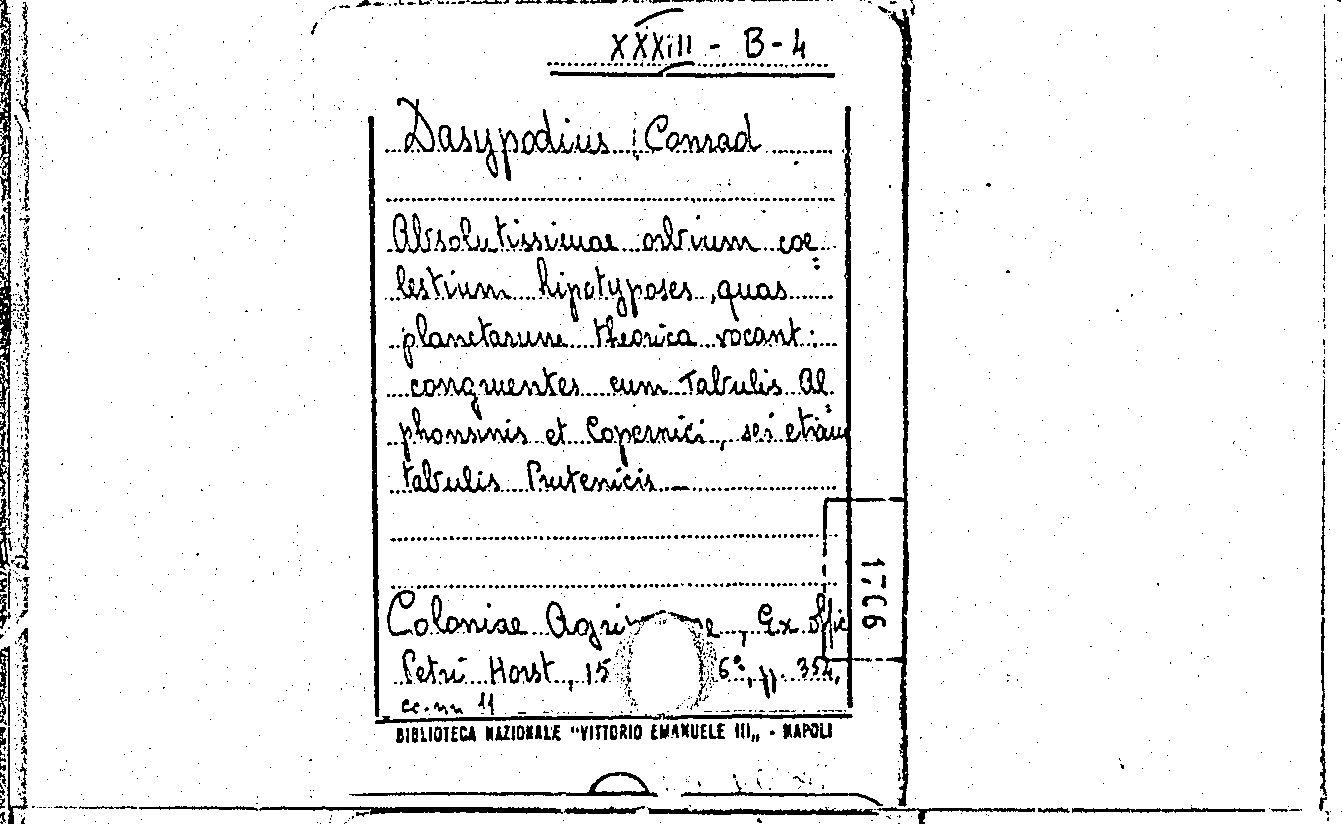 XXXIII - B-4
Dasypodius Conrad
Absolutissimae orbium coe=
lestium hipotyposes, quas
planetarum theorica vocant:
congruentes cum Tabulis Al=
phonsinis et Copernici, sei etiam
tabulis Prutenicis
Coloniae Agri e, Ex offic
Petri Horst, 15 6°, pp. 354,
cc. nn 11
BIBLIOTECA NAZIONALE "VITTORIO EMANUELE III„ - NAPOLI
1706